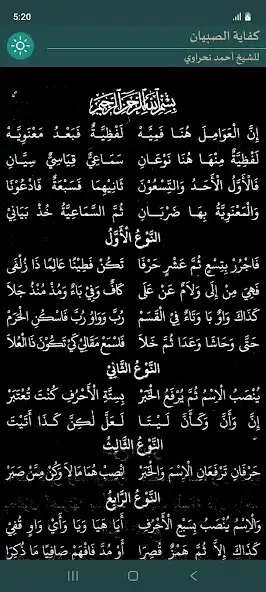 5:20
كفاية الصبيان
للشيخ أحمد نحراوي
بِسْمِ اللَّهِ الرَّحْمَنِ الرَّحِيمِ
إِنَّ الْعَوَامِلَ هُنَا قَمِيَّـهْ لَفْظِيَّـةٌ فَبَعْـدُ مَعْنَوِيَّـهْ
لَفْظِيَّةٌ مِنْهَا هُنَا نَوْعَـانِ سَمَاعِيٌّ قِيَاسِيٌّ سِيَّـانِ
فَالْأَوَّلُ الْأَحَـدُ وَالتِّسْعُوْنَ ثَانِيْهِمَا فَسَبْعَةٌ فَادْعُوْنَا
وَالْمَعْنَوِيَّةُ بِهَـا ضَرْبَـانِ ثُمَّ السَّمَاعِيَّةُ خُذْ بَيَانِي
النَّوْعُ الْأَوَّلُ
فَاجْرُرْ بِتِسْعٍ ثُمَّ عَشْرٍ حَرْفَا تَكُنْ فَطِيْنًا عَالِمًا ذَا زُلْفَى
فَهِيَ مِنْ إِلَى وَلَامٌ عَنْ عَلَى كَافٌ وَفِي بَاءٌ وَمُذْ مُنْذُ جَلَا
كَذَاكَ وَاوٌ بَا وَتَاءٌ فِي الْقَسَمْ رُبَّ وَوَاوُ رُبَّ فَاسْكُنِ الْحَرَمْ
حَتَّى وَحَاشَا وَعَدَا ثُمَّ خَلَا فَاسْمَعْ مَقَالِي كَيْ تَكُوْنَ ذَا الْعُلَا
النَّوْعُ الثَّانِي
يُنْصَبُ الْإِسْمُ ثُمَّ يُرْفَعُ الْخَبَرْ بِسِتَّةِ الْأَحْرُفِ كُنْتَ تُعْتَبَرْ
إِنَّ وَأَنَّ وَكَـأَنَّ لَيْـتَـا لَعَلَّ لَكِنَّ كَـذَا أَتَيْتَ
النَّوْعُ الثَّالِثُ
حَرْفَانِ تَرْفَعَانِ الْإِسْمَ وَالْخَبَرْ انْصِبْ هُمَا مَا لَا وَكُنْ مِمَّنْ صَبَرْ
النَّوْعُ الرَّابِعُ
وَالْإِسْمُ يُنْصَبُ بِسَبْعِ الْأَحْرُفِ أَيَا هَيَا وَيَا وَأَيْ وَاوٍ قُفِيْ
كَذَاكَ إِلَّا ثُمَّ هَمْزٌ قُصِرَا أَوْ مُدَّ فَافْهَمْ صَافِيًا مَا ذُكِرَا